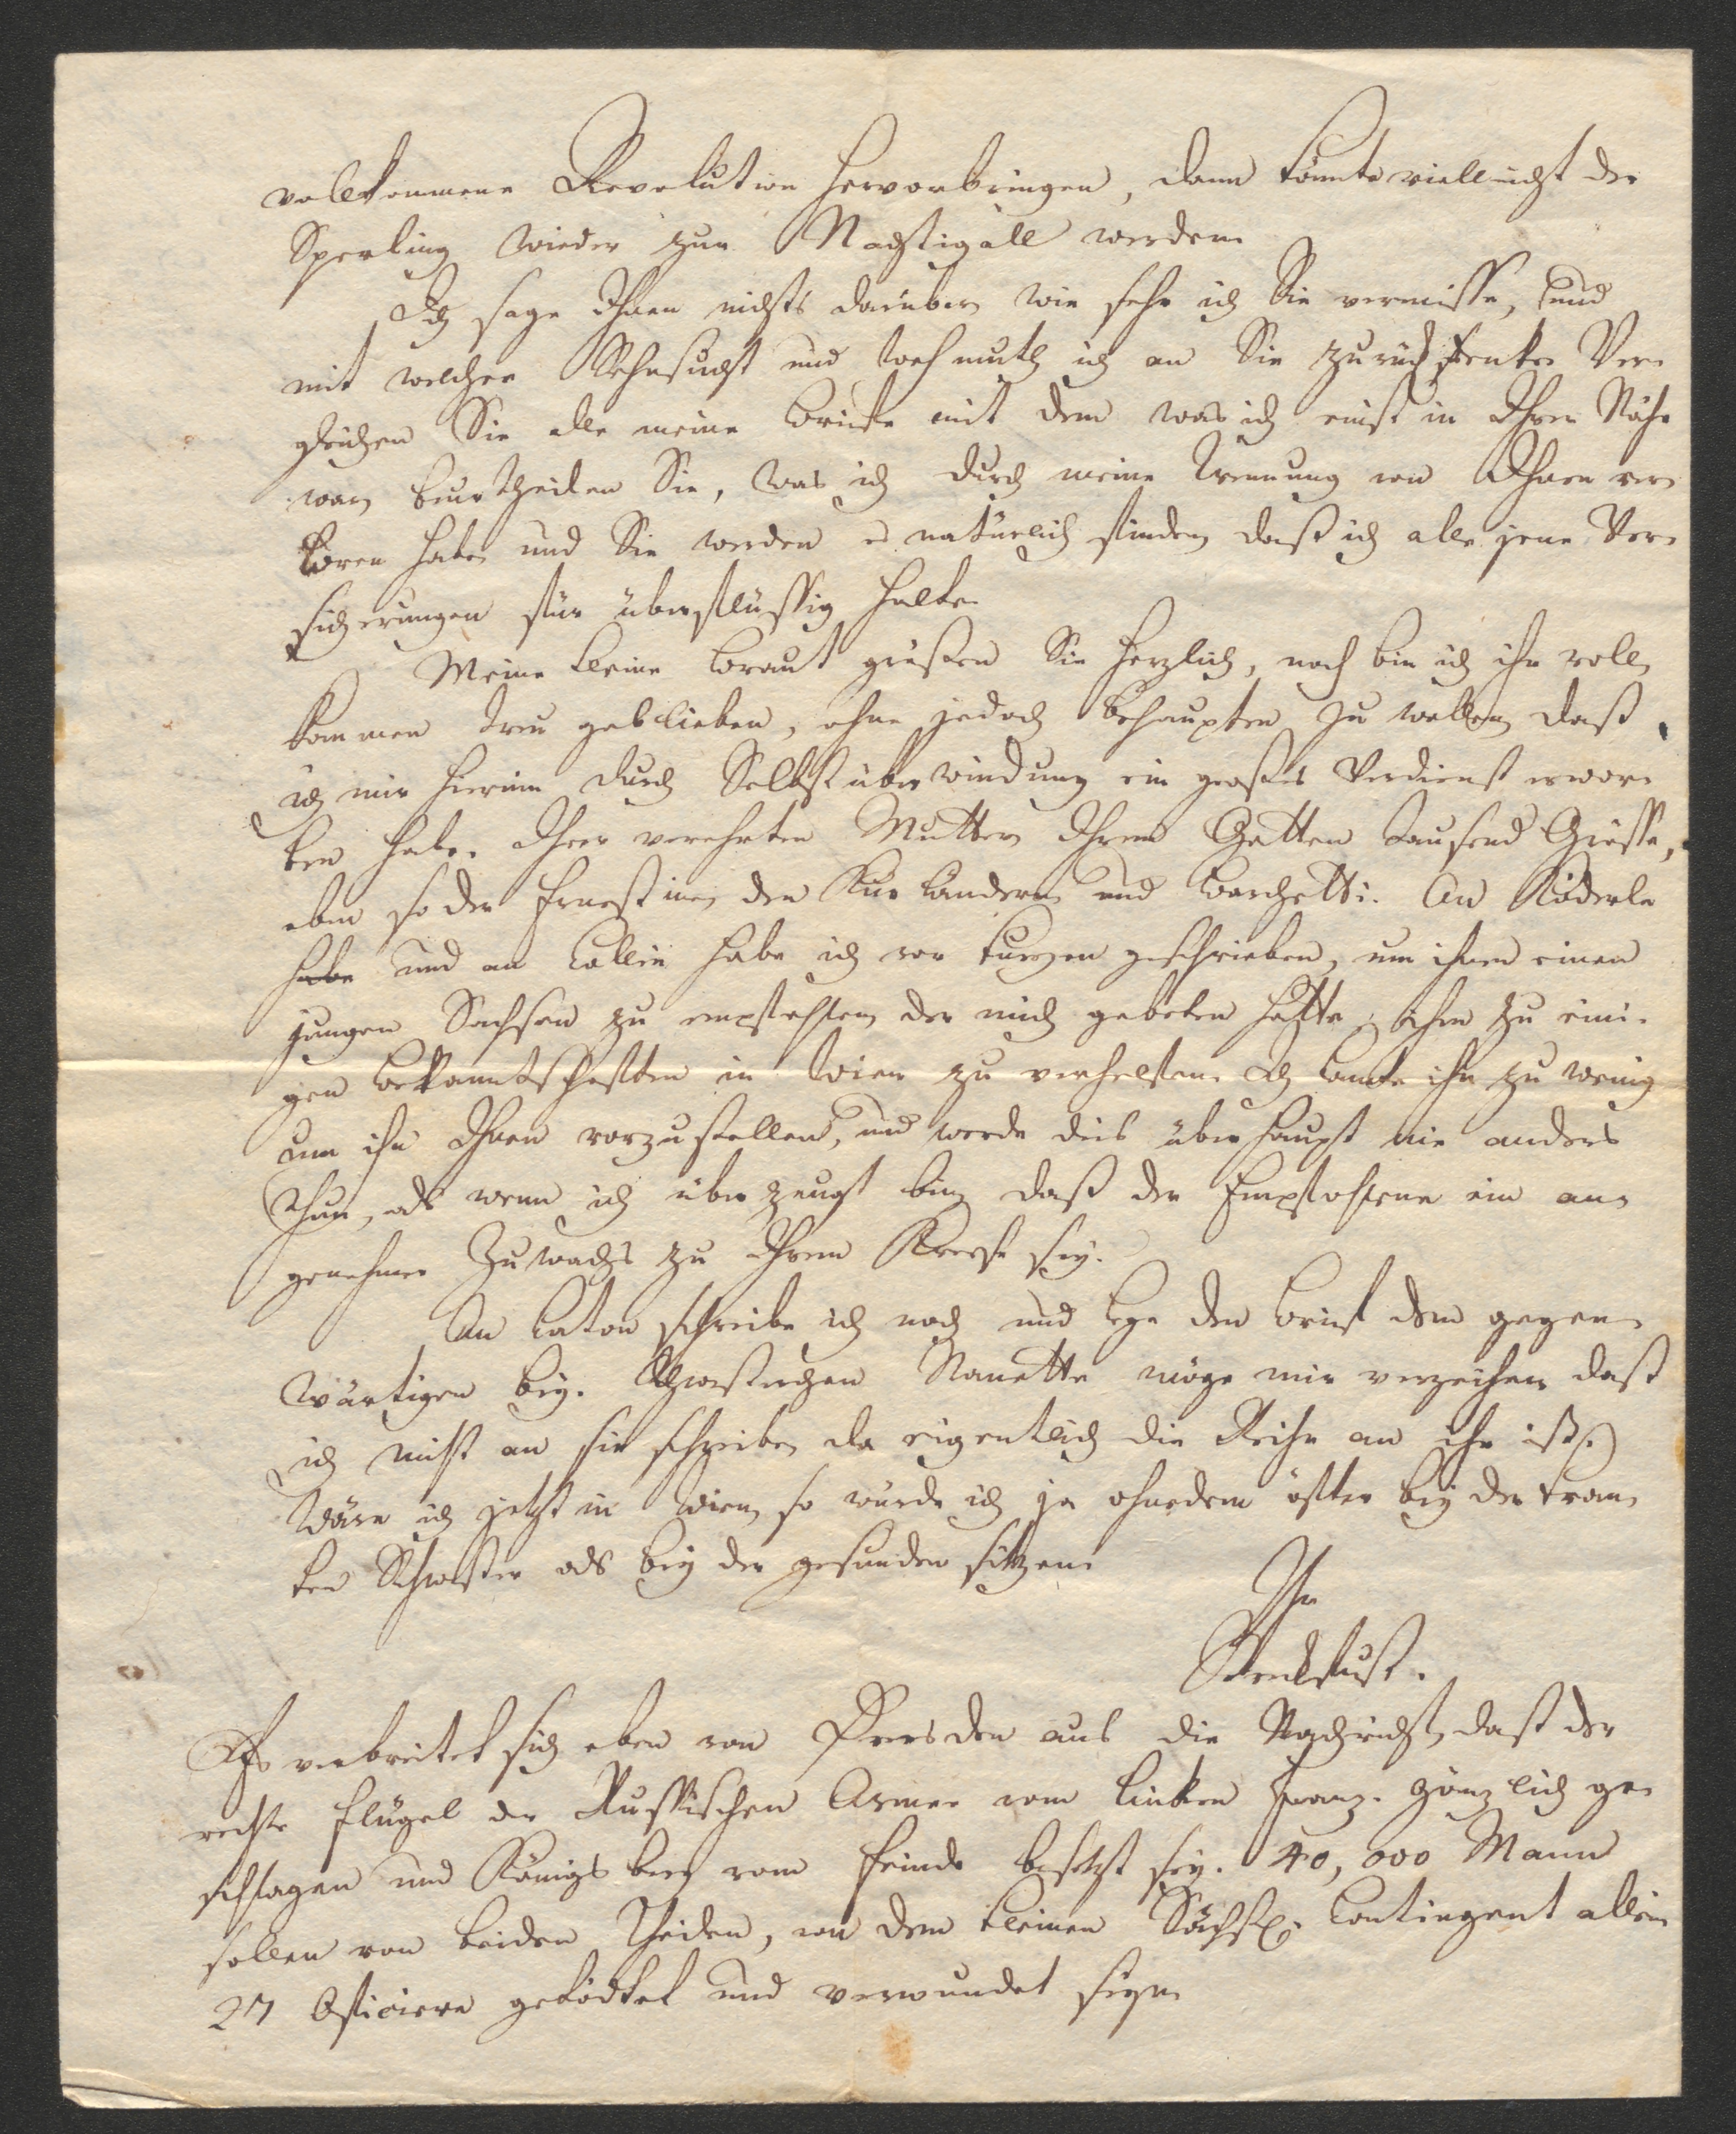 vollkommene Revolution hervorbringen, dann könnte vielleicht der
Sperling wieder zur Nachtigall werden.
Ich sage Ihnen nichts darüber wie sehr ich Sie vermisse, und
mit welcher Sehnsucht und Wehmuth ich an Sie zurück denke. Ver-
gleichen Sie alle meine Briefe mit dem was ich einst in Ihrer Nähe
war, beurtheilen Sie, was ich durch meine Trennung von Ihnen ver-
loren habe, und Sie werden es natürlich finden, daß ich alle jene Ver-
sicherungen für überflüssig halte.
Meine kleine Braut grüßen Sie herzlich, noch bin ich ihr voll-
kommen treu geblieben, ohne jedoch behaupten zu wollen, daß
ich mir hierinn durch Selbstüberwindung ein großes Verdienst erwor-
ben habe. Ihrer verehrten Mutter, Ihrem Gatten tausend Grüsse,
eben so der Ernestine, den Kurländern und Barchetti. An Köderle
habe und an Collin habe ich vor kurzem geschrieben, um ihnen einen
jungen Sachsen zu empfehlen, der mich gebeten hatte, ihm zu eini-
gen Bekanntschaften in Wien zu verhelfen. Ich kannte ihn zu wenig
um ihn Ihnen vorzustellen, und werde dies überhaupt nie anders
thun, als wenn ich überzeugt bin, daß der Empfohlene ein an-
genehmer Zuwachs zu Ihrem Kreise sey.
An Caton schreibe ich noch und lege den Brief dem gegen-
wärtigen bey. Schwesterchen Nanette möge mir verzeihen daß
ich nicht an sie schreibe, da eigentlich die Reihe an ihr ist.
Wäre ich jetzt in Wien, so würde ich ja ohnedem öfter bey der kran-
ken Schwester als bey der gesunden sitzen.
Ihr
Streckfuß.
Es verbreitet sich eben von Dresden aus die Nachricht, daß der
rechte Flügel der Russischen Armee vom linken Franz. gänzlich ge-
schlagen und Königsberg vom Feinde besetzt sey. 40,000 Mann
sollen von beiden Theilen, von dem kleinen Sächs. Contingent allein
27 Officiere getödtet und verwundet seyn.